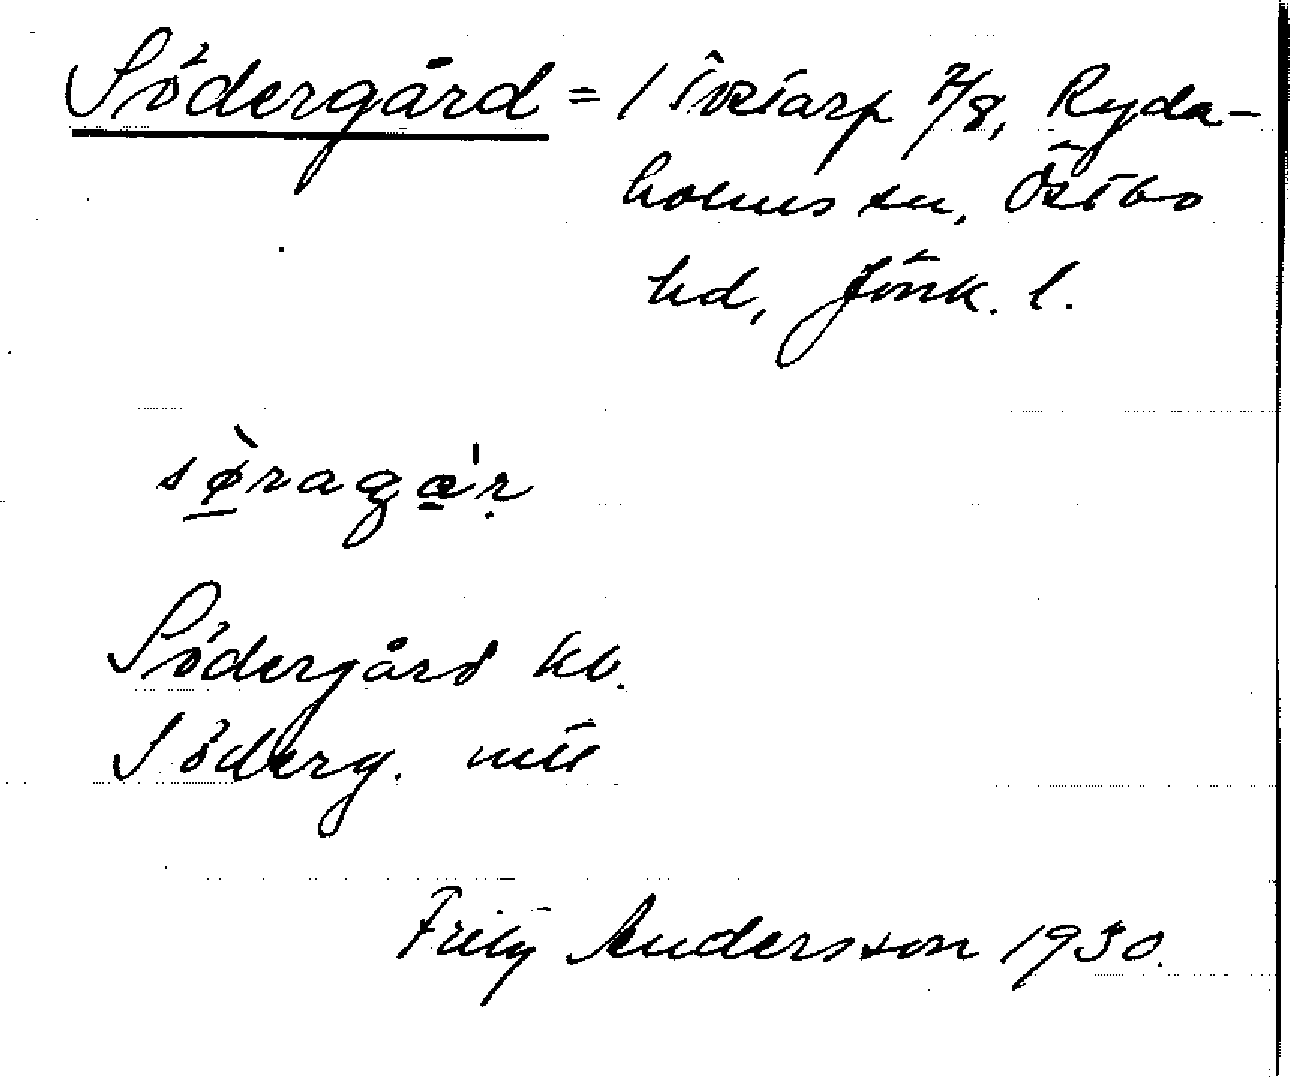 Södergård = 1 Tortarp 7/8, Ryda-
holms sn, Östbo
hd, Jönk. l.
søragα'r
Södergård kb.
Söderg. mtl
Fritz Andersson 1930.